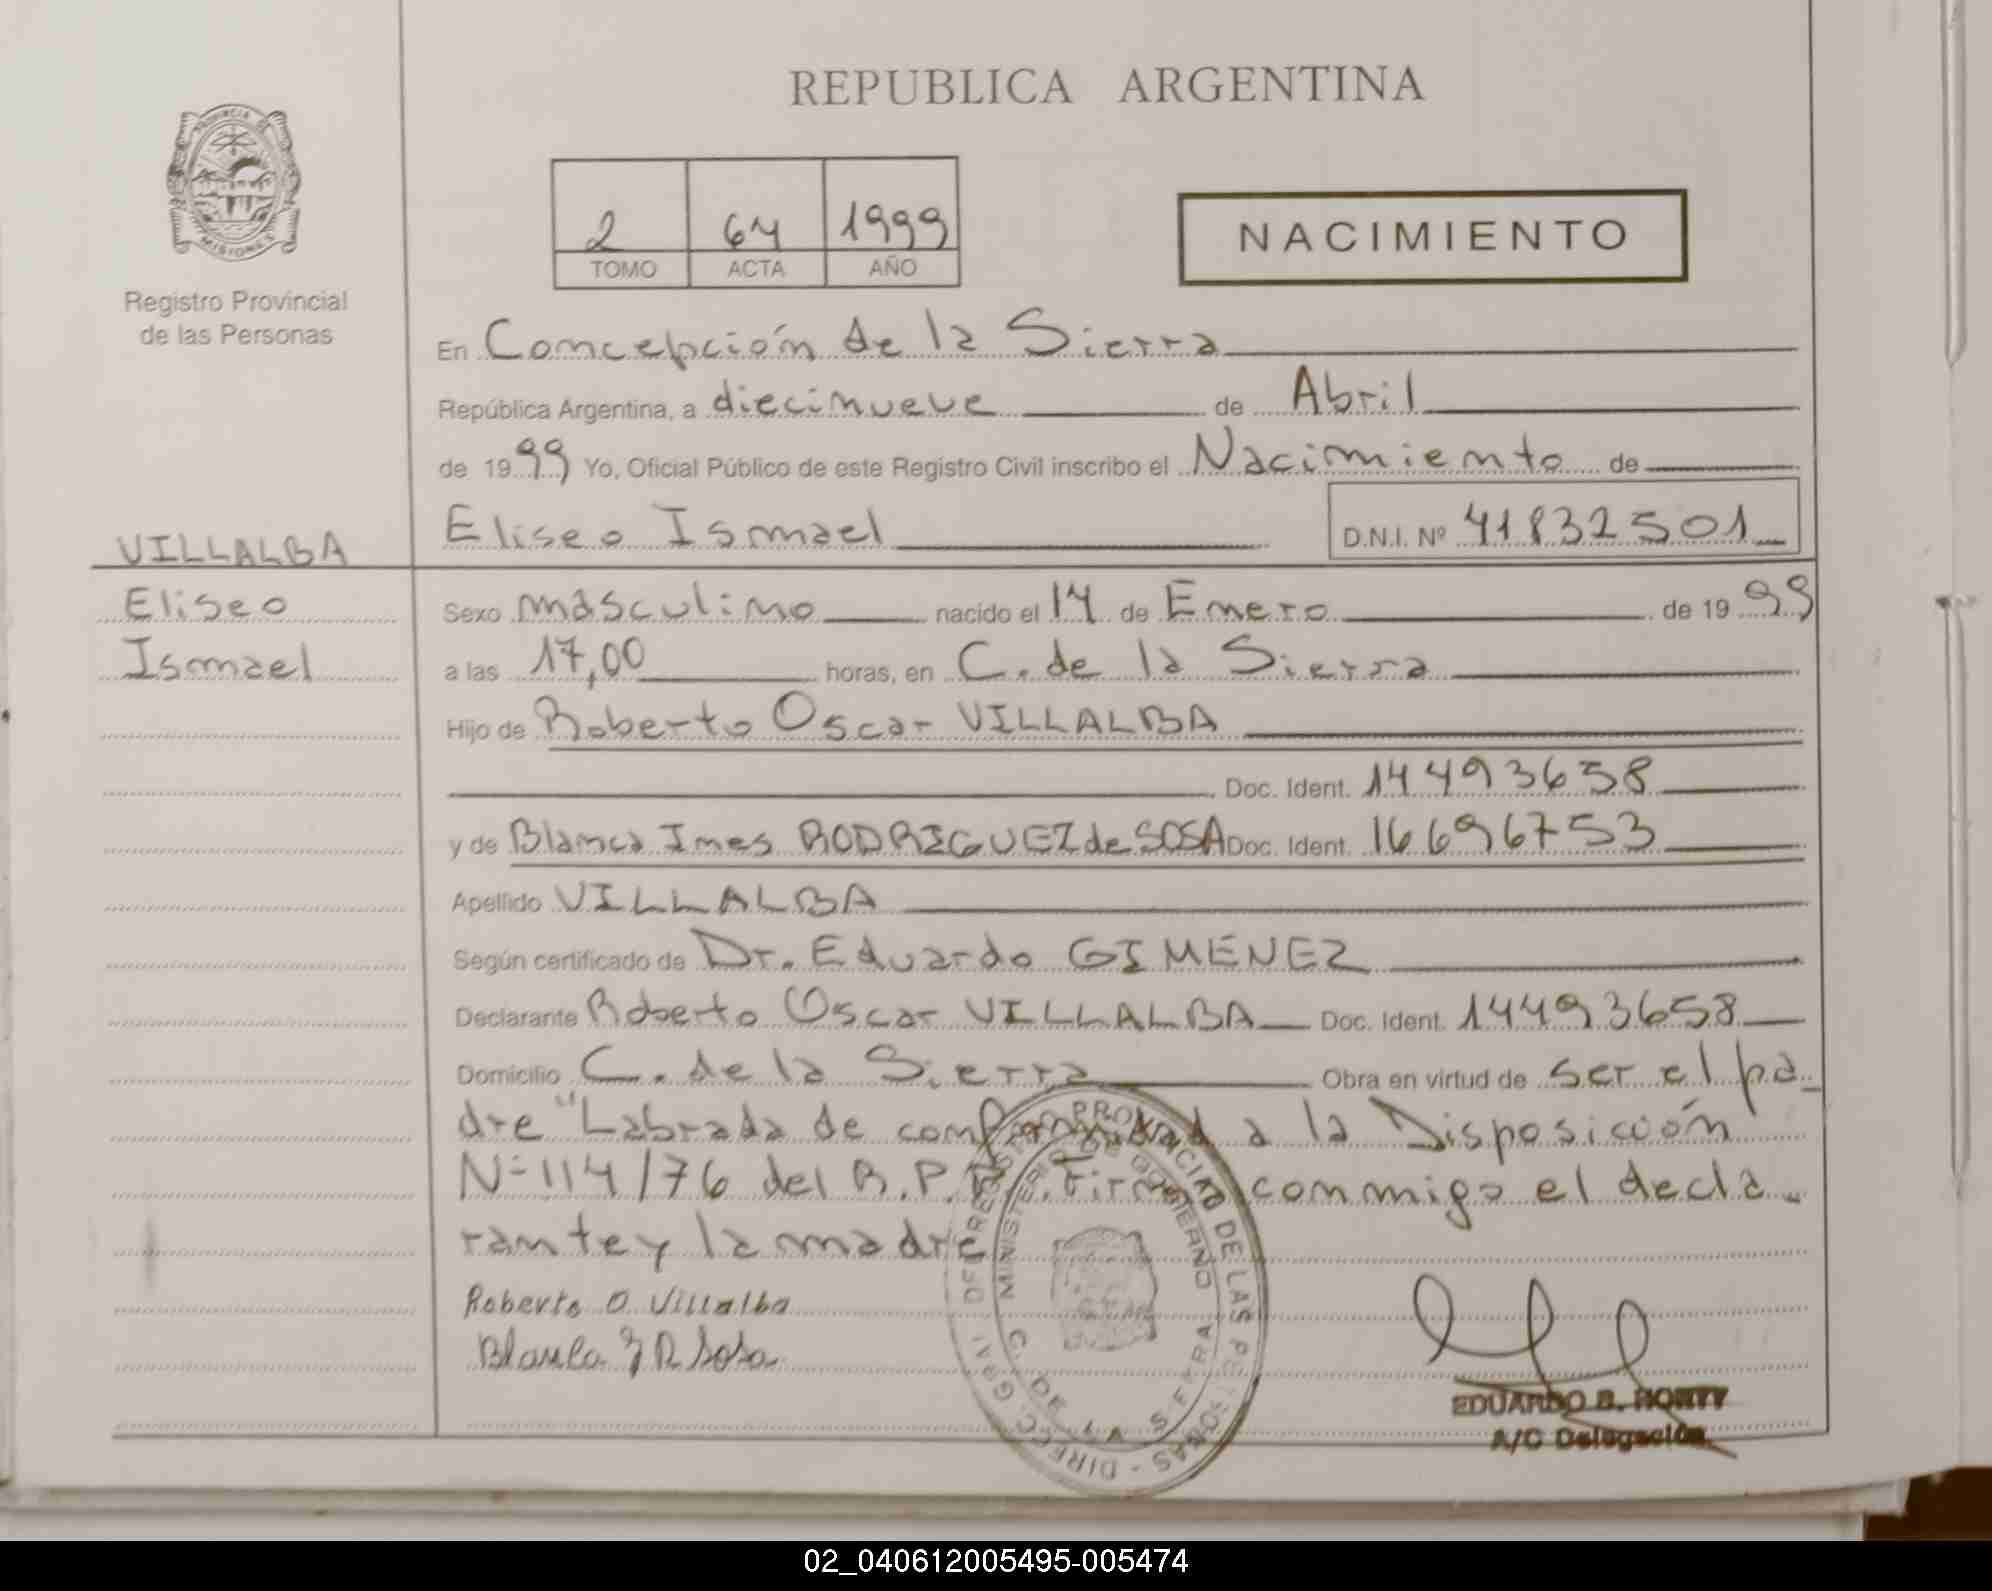 REPUBLICA ARGENTINA
PROVINCIA DE
MISIONES
Registro Provincial
de las Personas
2 64 1999
TOMO ACTA AÑO
NACIMIENTO
En Concepción de la Sierra
República Argentina, a diecinueve de Abril
de 1999 Yo, Oficial Público de este Registro Civil inscribo el Nacimiento de
VILLALBA Eliseo Ismael D.N.I. Nº 41832501
Eliseo Sexo masculino nacido el 14 de Enero de 1999
Ismael a las 17,00 horas, en C. de la Sierra
Hijo de Roberto Oscar VILLALBA
Doc. Ident. 14493658
y de Blanca Ines RODRIGUEZ de SOSA Doc. Ident. 16696753
Apellido VILLALBA
Según certificado de Dr. Eduardo GIMENEZ
Declarante Roberto Oscar VILLALBA Doc. Ident. 14493658
Domicilio C. de la Sierra Obra en virtud de ser el pa
dre "Labrada de conformidad a la Disposición
Nº 114/76 del R.P.P. Firma conmigo el decla
rante y la madre
Roberto O Villalba
Blanca I R Sosa
PROVINCIAL DE LAS PERSONAS - DIRECC. GRAL. DEL REGISTRO
MINISTERIO DE GOBIERNO
C. DE LA SIERRA
EDUARDO B. HORTY
A/C Delegación
02_040612005495-005474